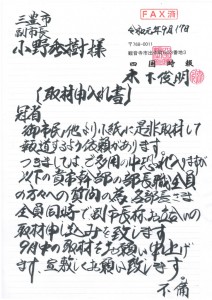 FAX済
三豊市
副市長
小野英樹様
令和元年9月17日
〒768-0011
四国時報
木下俊明
【取材申入れ書】
冠省
御市民他より小紙に是非取材して
報道するよう依頼があります。
つきましては、ご多用中恐れ入りますが
以下の貴市幹部の部長職全員
の方々への質問の為、各部長さま
全員同時で副市長様お立会いの
取材申し込みを致します。
9月末の取材をお願い申し上げ
ます、宜敷くお願い致します。
不備